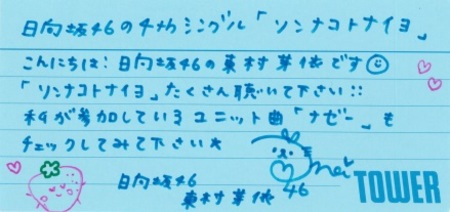 日向坂46の4thシングル「ソンナコトナイヨ」
こんにちは!日向坂46の東村芽依です☺
「ソンナコトナイヨ」たくさん聴いて下さい!!
私が参加しているユニット曲「ナゼー」も
チェックしてみて下さい★
日向坂46
東村芽依
mei
46
TOWER